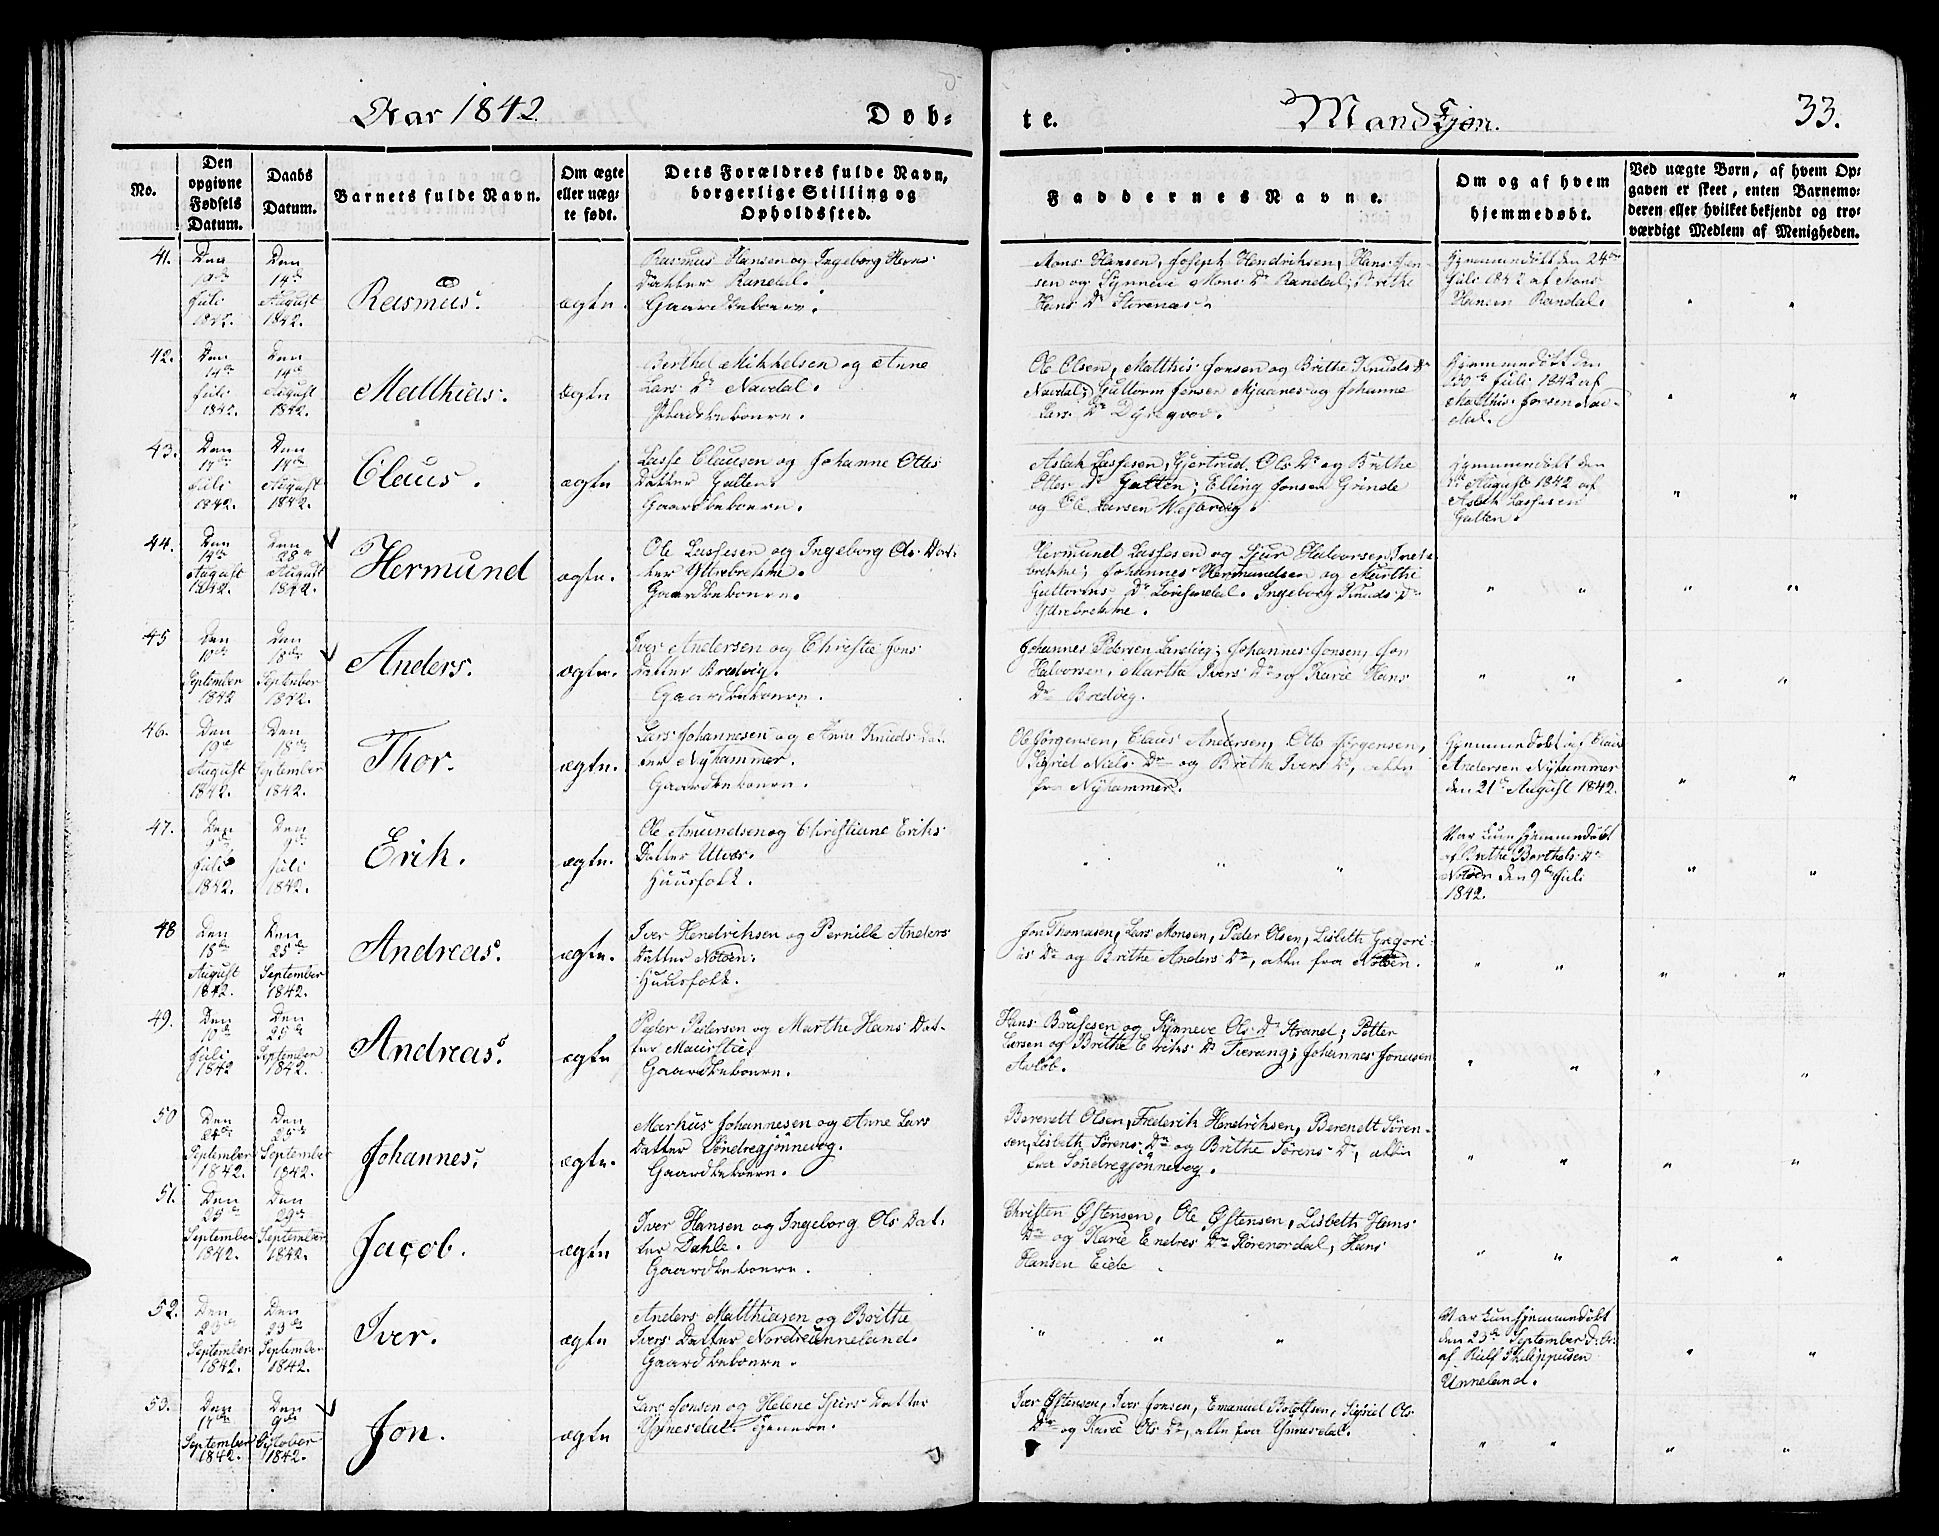 Aar 1842. Døb-
te. Mandkjøn. 33.
No.
Den opgivne Fødsels Datum.
Daabs Datum.
Barnets fulde Navn.
Om ægte eller uægte født.
Dets Forældres fulde Navn, borgerlige Stilling og Opholdssted.
Faddernes Navne.
Om og af hvem hjemmedøbt.
Ved uægte Børn, af hvem Opgaven er skeet, enten Barnemoderen eller hvilket bekjendt og troværdigt Medlem af Menigheden.
41. Den Juli 1842. Den 14de August 1842. Rasmus. ægte.
Rasmus Hansen og Ingeborg Hans
Datter Randal.
Gaardbeboere.
Mons Hansen, Joseph Hendriksen, Hans Jen-
sen og Synneve Mons Dr Randal; Brithe
Hans Dr Storenæs.
Hjemmedøbt den 24de
Juli 1842 af Mons
Hansen Randal.
42. Den 14de Juli 1842. Den 14de August 1842. Matthias. ægte
Berthel Mikkelsen og Anne
Lars Dr Navdal.
Pladsbeboere.
Ole Olsen, Matthis Jonsen og Brithe Knuds Dr
Navdal; Guttorm Jensen Mjaanes og Johanne
Lars Dr
Hjemmedøbt den
Juli 1842 af
Matthis Jonsen Nav-
dal.
43. Den 17de Juli 1842. Den 14de August 1842. Claus. ægte
Lasse Clausen og Johanne Ottes
Datter Galten.
Gaardbeboere.
Aslak Lassesen, Gjertrud Ols Dr og Brithe
Ottes Dr Galten; Elling Jonsen Grinde
og Ole Larsen
Hjemmedøbt den
August 1842 af
Aslak Lassesen
Galten.
44. Den 14de August 1842. Den 28de August 1842. Hermund ægte.
Ole Lassesen og Ingeborg Ols Dat-
ter Yttrebrekke.
Gaardbeboere.
Hermund Lassesen og Sjur Halvorsen
brekke; Johannes Hermundsen og Marthe
Guttorms Dr Ingeborg Knuds Dr
Yttrebrekke.
45 Den 10de September 1842 Den 18de September 1842. Anders. ægte.
Iver Andersen og Christie Jons
Datter Bredvig.
Gaardbeboere.
Johannes Pedersen Johannes Jonsen, Jon
Halvorsen, Marthe Ivers Dr og Karie Hans
Dr Bredvig.
46. Den 19de August 1842. Den 18de September 1842. Thor. ægte.
Lars Johannesen og Anne Knuds Dat-
ter Nyhammer.
Gaardbeboere.
Ole Jørgensen, Claus Andersen, Otto Jørgensen,
Sigrid Niels Dr og Brithe Ivers Dr, alle
fra Nyhammer.
Hjemmedøbt af Claus
Andersen Nyhammer
den 21de August 1842.
47. Den Juli 1842. Den Juli 1842. Erik. ægte.
Ole Amundsen og Christiane Eriks
Datter Utvær.
Huusfolk.
Var kun hjemmedøbt
af Brithe Berthels Dr
den 9de Juli
1842.
48 Den 15de August 1842. Den 25de September 1842. Andreas. ægte.
Iver Hendriksen og Pernille Anders
Datter Notøen.
Huusfolk.
Jon Thomasen, Lars Monsen, Peder Olsen, Lisbeth Gregori-
us Dr og Brithe Anders Dr, alle fra Notøen.
49. Den 10de Juli 1842 Den 25de September 1842. Andreas. ægte
Peder Pedersen og Marthe Hans Dat-
ter
Gaardbeboere.
Hans Brusesen og Synneve Ols Dr Strand; Petter
Larsen og Brithe Eriks Dr Tverang; Johannes Jonassen
Avløb.
50 Den 24de September 1842. Den 25de September 1842. Johannes. ægte.
Markus Johannesen og Anne Lars
Datter Søndregjønnevog.
Gaardbeboere.
Berenett Olsen, Frederik Hendriksen, Berenett Søren-
sen, Lisbeth Sørens Dr og Brithe Sørens Dr, alle
fra Søndregjønnevog.
51. Den 25de September 1842. Den 29de September 1842. Jacob. ægte
Iver Hansen og Ingeborg Ols Dat-
ter Dahle.
Gaardbeboere.
Christen Østensen, Ole Østensen, Lisbeth Hans
Dr og Karie Endres Dr Hans
Hansen Eide
52. Den 23de September 1842. Den 23de September 1842. Iver. ægte
Anders Matthiasen og Brithe
Ivers Datter Nordreunneland.
Gaardbeboere.
Var kun hjemmedøbt
den 23de September d.A.
af Philippusen
Unneland.
53. Den 17de September 1842. Den 9de October 1842. Jon. ægte
Lars Jonsen og Helene Sjurs Datter
Ynnesdal.
Iver Østensen, Iver Jonsen, Emanuel Botolfsen, Sigrid Ols
Dr og Karie Ols Dr, alle fra Ynnesdal.